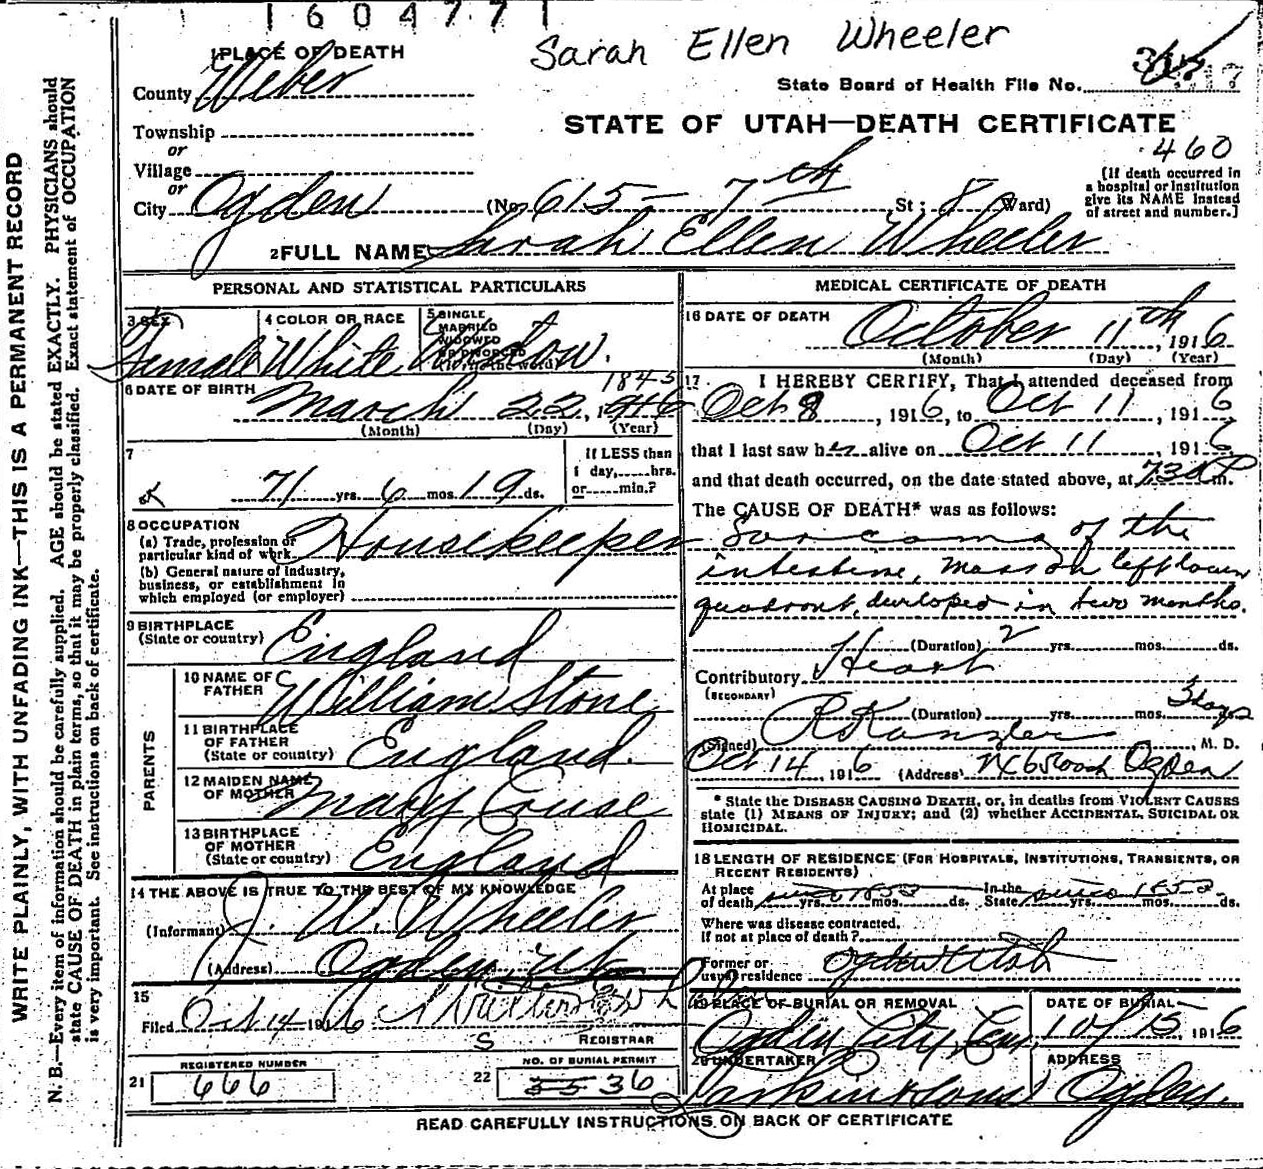 1604771
Sarah Ellen Wheeler
1 PLACE OF DEATH
County Weber
State Board of Health File No.
Township
or
Village
or
City Ogden (No. 615 - 7th St: 8 Ward)
STATE OF UTAH—DEATH CERTIFICATE
460
[If death occurred in
a hospital or institution
give its NAME instead
of street and number.]
2 FULL NAME Sarah Ellen Wheeler
PERSONAL AND STATISTICAL PARTICULARS
3 SEX
Female
4 COLOR OR RACE
White
5 SINGLE
MARRIED
WIDOWED
OR DIVORCED
(Write the word)
Widow.
6 DATE OF BIRTH March 22, 1845
(Month) (Day) (Year)
7
71 yrs. 6 mos. 19 ds.
If LESS than
1 day,......hrs.
or......min.?
8 OCCUPATION
(a) Trade, profession or
particular kind of work Housekeeper
(b) General nature of industry,
business, or establishment in
which employed (or employer)
9 BIRTHPLACE
(State or country) England
PARENTS
10 NAME OF
FATHER William Stone
11 BIRTHPLACE
OF FATHER
(State or country) England.
12 MAIDEN NAME
OF MOTHER Mary Cruse
13 BIRTHPLACE
OF MOTHER
(State or country) England
14 THE ABOVE IS TRUE TO THE BEST OF MY KNOWLEDGE
(Informant) J. W. Wheeler
(Address) Ogden, Ut
15
Filed Oct 14 1916
REGISTRAR
S
REGISTERED NUMBER
21 666
NO. OF BURIAL PERMIT
22 3536
MEDICAL CERTIFICATE OF DEATH
16 DATE OF DEATH October 11th, 1916
(Month) (Day) (Year)
17 I HEREBY CERTIFY, That I attended deceased from
Oct 8, 1916, to Oct 11, 1916
that I last saw her alive on Oct 11, 1916
and that death occurred, on the date stated above, at 730 P m.
The CAUSE OF DEATH* was as follows:
Sarcoma of the
intestine, mass on left lower
quadrant, developed in two months.
(Duration) 2 yrs. mos. ds.
Contributory Heart
(SECONDARY)
(Duration) yrs. mos. 3 days
(Signed) R Kanzler, M. D.
Oct 14, 1916 (Address) Ogden
* State the DISEASE CAUSING DEATH, or, in deaths from VIOLENT CAUSES
state (1) MEANS OF INJURY; and (2) whether ACCIDENTAL, SUICIDAL OR
HOMICIDAL.
18 LENGTH OF RESIDENCE (FOR HOSPITALS, INSTITUTIONS, TRANSIENTS, OR
RECENT RESIDENTS)
At place
of death since 1853 yrs. mos. ds. In the
State since 1853 yrs. mos. ds.
Where was disease contracted,
If not at place of death?
Former or
usual residence Ogden Utah
19 PLACE OF BURIAL OR REMOVAL
Ogden City Cem.
DATE OF BURIAL
10/15, 1916
20 UNDERTAKER
Larkin & Sons
ADDRESS
Ogden.
READ CAREFULLY INSTRUCTIONS ON BACK OF CERTIFICATE
WRITE PLAINLY, WITH UNFADING INK—THIS IS A PERMANENT RECORD
N. B.—Every item of information should be carefully supplied. AGE should be stated EXACTLY. PHYSICIANS should
state CAUSE OF DEATH in plain terms, so that it may be properly classified. Exact statement of OCCUPATION
is very important. See instructions on back of certificate.